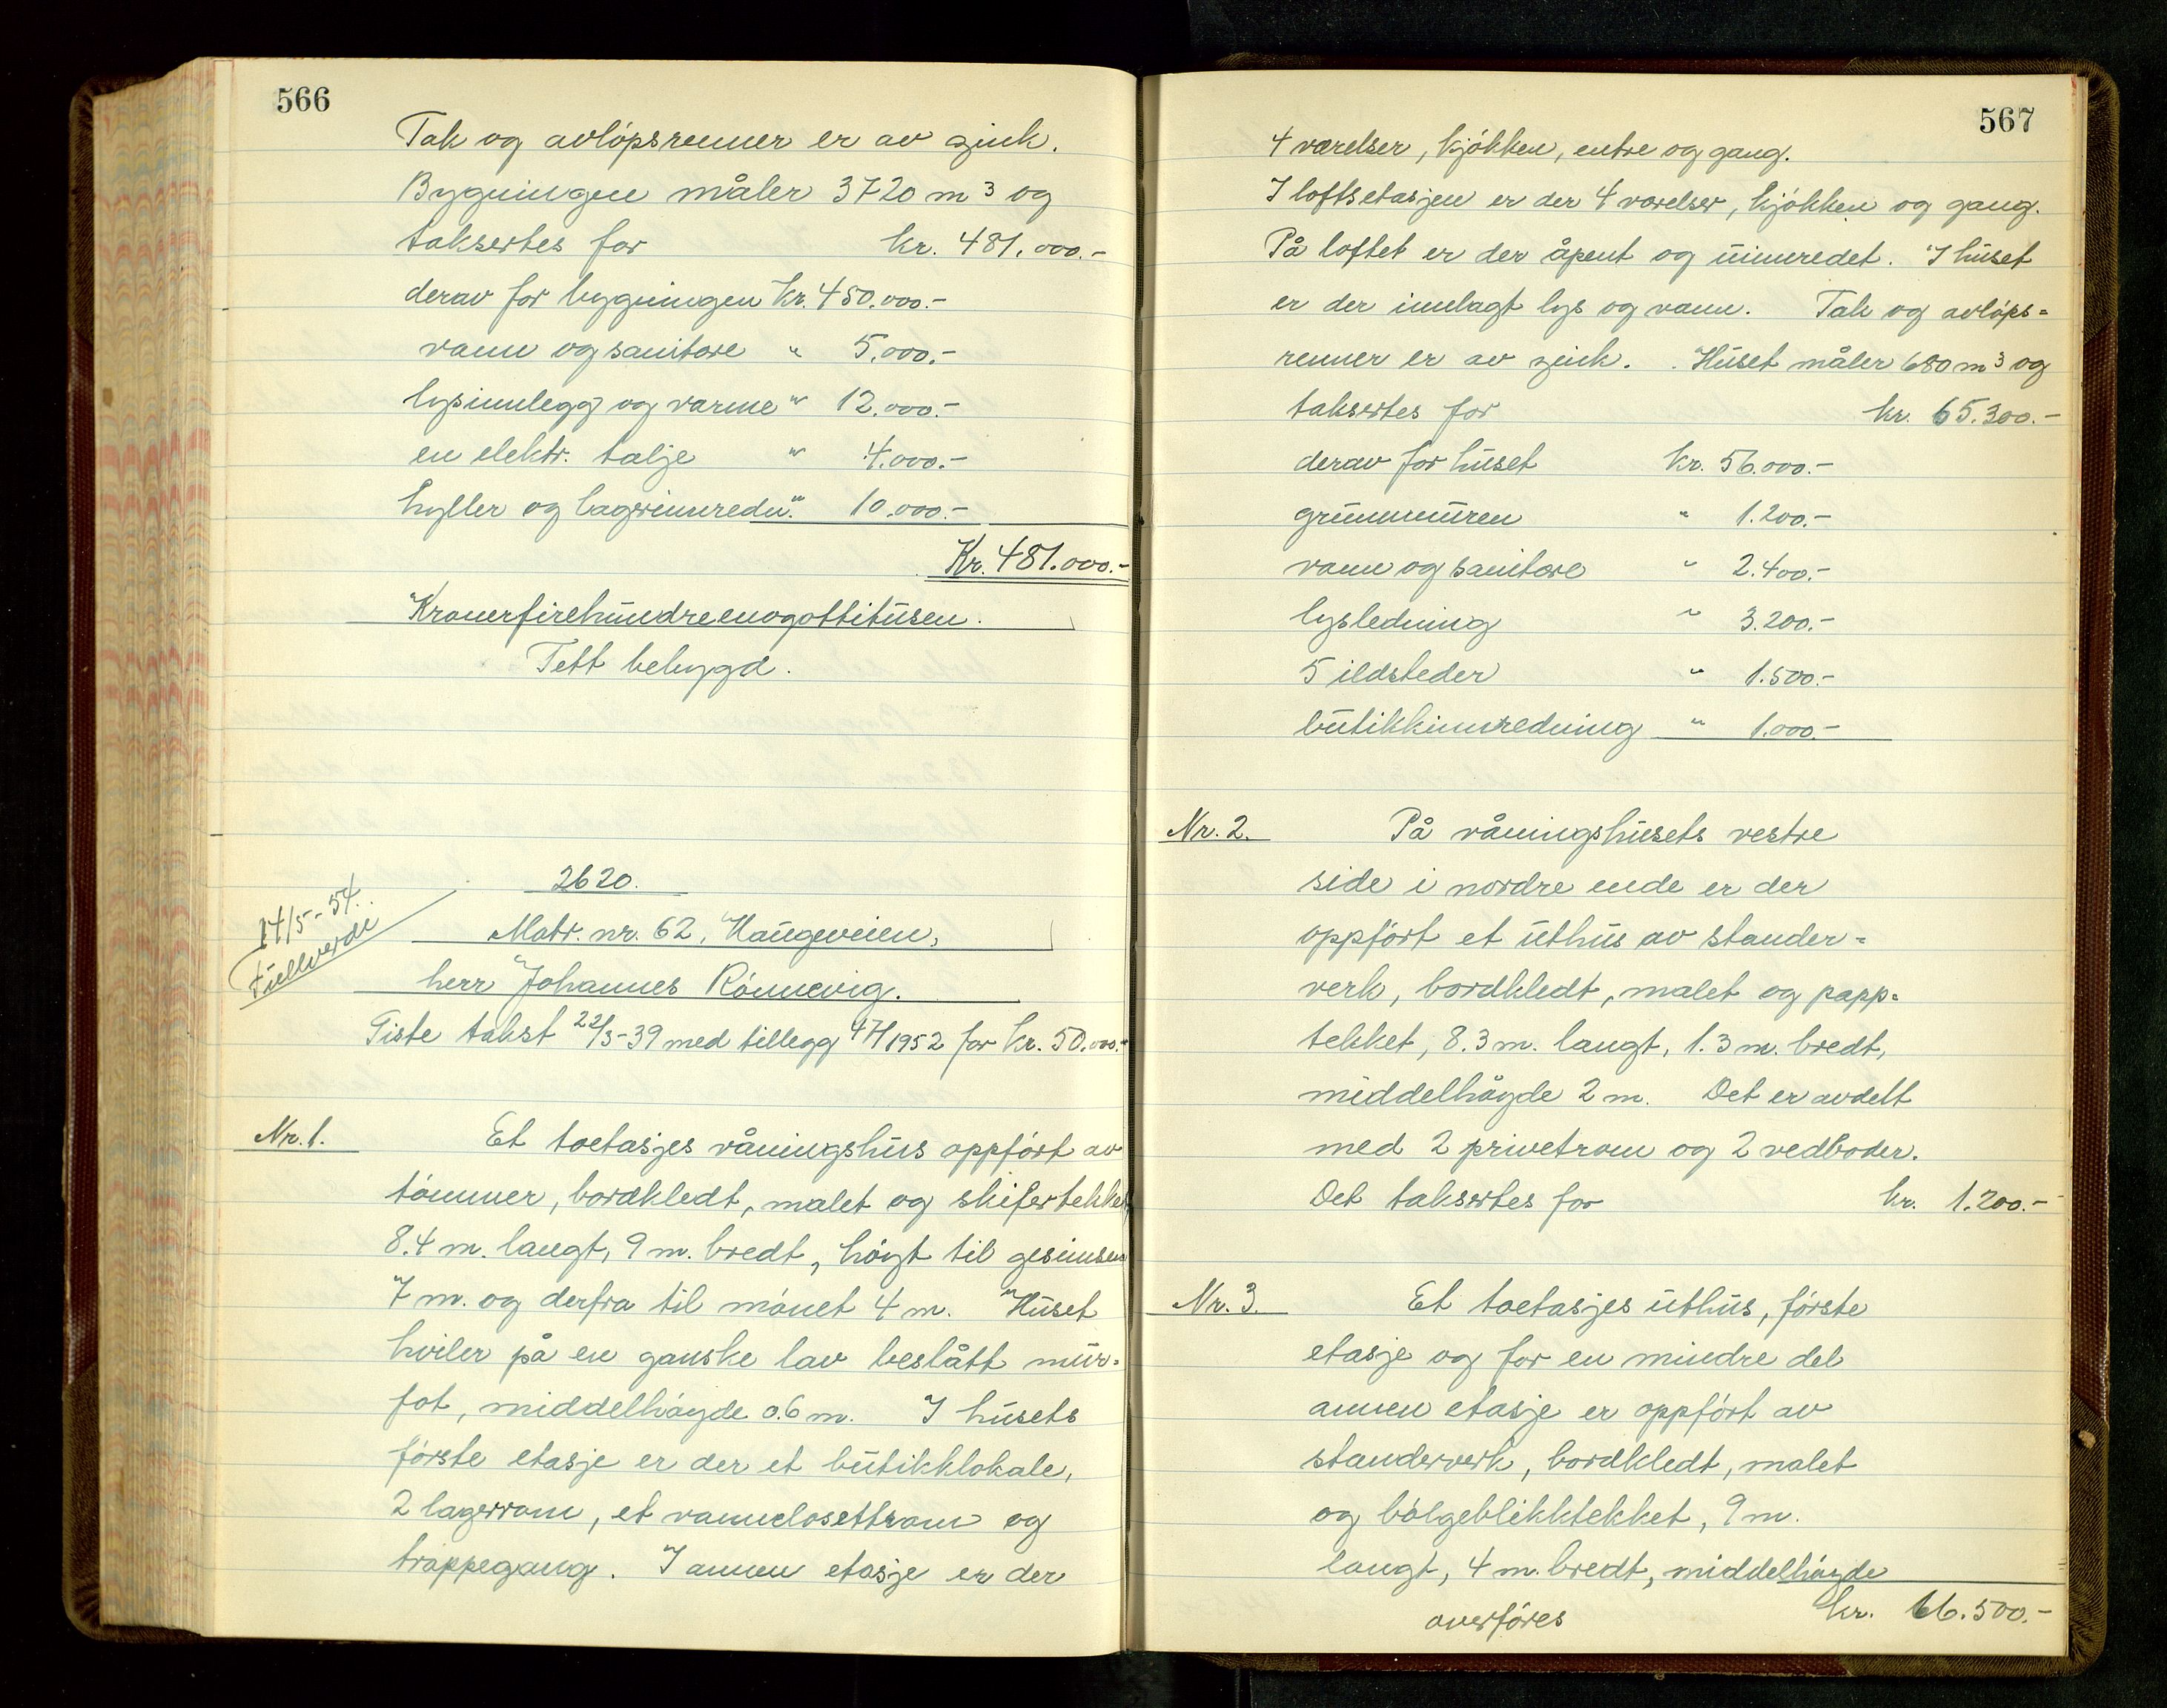 566
Tak og avlöpsrenner er av zink.
Bygningen måler 3720 m³ og
taksertes for kr. 481.000.-
derav for bygningen kr. 450.000.-
vann og sanitære " 5.000.-
lysinnlegg og varme " 12.000.-
en elektr. talje " 4.000.-
hyller og lagerinnredn. " 10.000.-
Kr. 481.000.-
Kronerfirehundreenogottitusen.
Tett bebygd.
2620.
14/5-54.
Fullverdi
Matr. nr. 62, Haugeveien,
herr Johannes Rönnevig.
Siste takst 22/3-39 med tillegg 1952 for kr. 50.000.-
Nr. 1. Et toetasjes våningshus oppfört av
tömmer, bordkledt, malet og skifertekket
8.4 m. langt, 9 m. bredt, höyt til gesimsen
7 m. og derfra til mönet 4 m. Huset
hviler på en ganske lav beslått mur-
fot, middelhöyde 0.6 m. I husets
förste etasje er der et butikklokale,
2 lagerrom, et vannclosettrom og
trappegang. I annen etasje er der
567
4 værelser, kjökken, entre og gang.
I loftsetasjen er der 4 værelser, kjökken og gang.
På loftet er der åpent og uinnredet. I huset
er der innlagt lys og vann. Tak og avlöps=
renner er av zink. Huset måler 680 m³ og
taksertes for kr. 65.300.-
derav for huset kr. 56.000.-
grunnmuren " 1.200.-
vann og sanitære " 2.400.-
lysledning " 3.200.-
5 ildsteder " 1.500.-
butikkinnredning " 1.000.-
Nr. 2. På våningshusets vestre
side i nordre ende er der
oppfört et uthus av stander=
verk, bordkledt, malet og papp=
tekket, 8.3 m. langt, 1.3 m. bredt,
middelhöyde 2 m. Det er avdelt
med 2 privetrom og 2 vedboder.
Det taksertes for kr. 1.200.-
Nr. 3. Et toetasjes uthus, förste
etasje og for en mindre del
annen etasje er oppfört av
standerverk, bordkledt, malet
og bölgeblikktekket, 9 m.
langt, 4 m. bredt, middelhöyde
overföres kr. 66.500.-